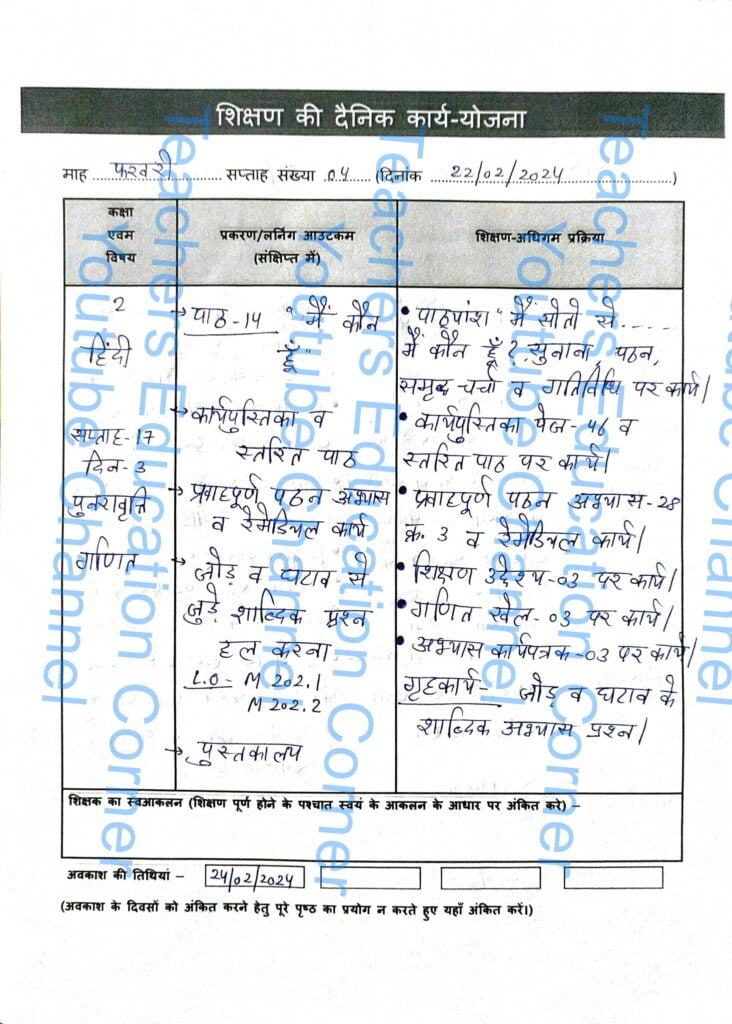 शिक्षण की दैनिक कार्य-योजना
माह फरवरी सप्ताह संख्या 04 (दिनांक 22/02/2024)
कक्षा
एवम
विषय
प्रकरण/लर्निंग आउटकम
(संक्षिप्त में)
शिक्षण-अधिगम प्रक्रिया
2
हिंदी
सप्ताह-17
दिन-3
पुनरावृत्ति
गणित
→ पाठ-14 "मैं कौन
हूँ"
→ कार्यपुस्तिका व
स्तरित पाठ
→ प्रवाहपूर्ण पठन अभ्यास
व रैमेडियल कार्य
→ जोड़ व घटाव से
जुड़े शाब्दिक प्रश्न
हल करना
L.O- M 202.1
M 202.2
→ पुस्तकालय
• पाठ्यांश "मैं सोतो से.....
मैं कौन हूँ? सुनाना, पठन,
समूह चर्चा व गतिविधि पर कार्य।
• कार्यपुस्तिका पेज-46 व
स्तरित पाठ पर कार्य।
• प्रवाहपूर्ण पठन अभ्यास-28
क्र. 3 व रैमेडियल कार्य।
• शिक्षण उद्देश्य-03 पर कार्य।
• गणित खेल-03 पर कार्य।
• अभ्यास कार्यपत्रक-03 पर कार्य।
गृहकार्य- जोड़ व घटाव के
शाब्दिक अभ्यास प्रश्न।
शिक्षक का स्वआकलन (शिक्षण पूर्ण होने के पश्चात स्वयं के आकलन के आधार पर अंकित करे) –
अवकाश की तिथियां – 24/02/2024
(अवकाश के दिवसों को अंकित करने हेतु पूरे पृष्ठ का प्रयोग न करते हुए यहाँ अंकित करें।)
Teachers Education Corner
Youtube Channel
Teachers Education Corner
Youtube Channel
Teachers Education Corner
Youtube Channel